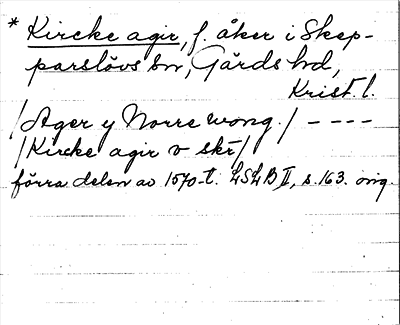 * Kircke agir, f. åker i Skep-
parslövs sn, Gärds hd,
Krist. l.
/Ager y Norre wong./ - - - -
/Kircke agir v skr/
förra delen av 1570-t. LSLB II, s. 163. orig.